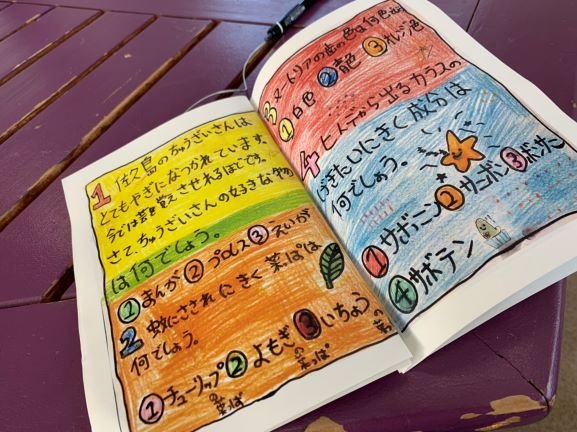 1 佐久島のちゅうざいさんは、
とてもやぎになつかれています。
今では芸を覚えさせれるほどです。
さて、ちゅうざいさんの好きな物
は何でしょう。
①まんが②プロレス③えいが
2 蚊にさされにきく葉っぱは
何でしょう。
①チューリップの葉っぱ②よもぎの葉っぱ③いちょうの葉
3 ヌートリアの歯の色は何色
①白色②青色③オレンジ色
4 ヒトデから出るカラスの
きたいにきく成分は
何でしょう。
①サポニン②サコポン③
④サボテン